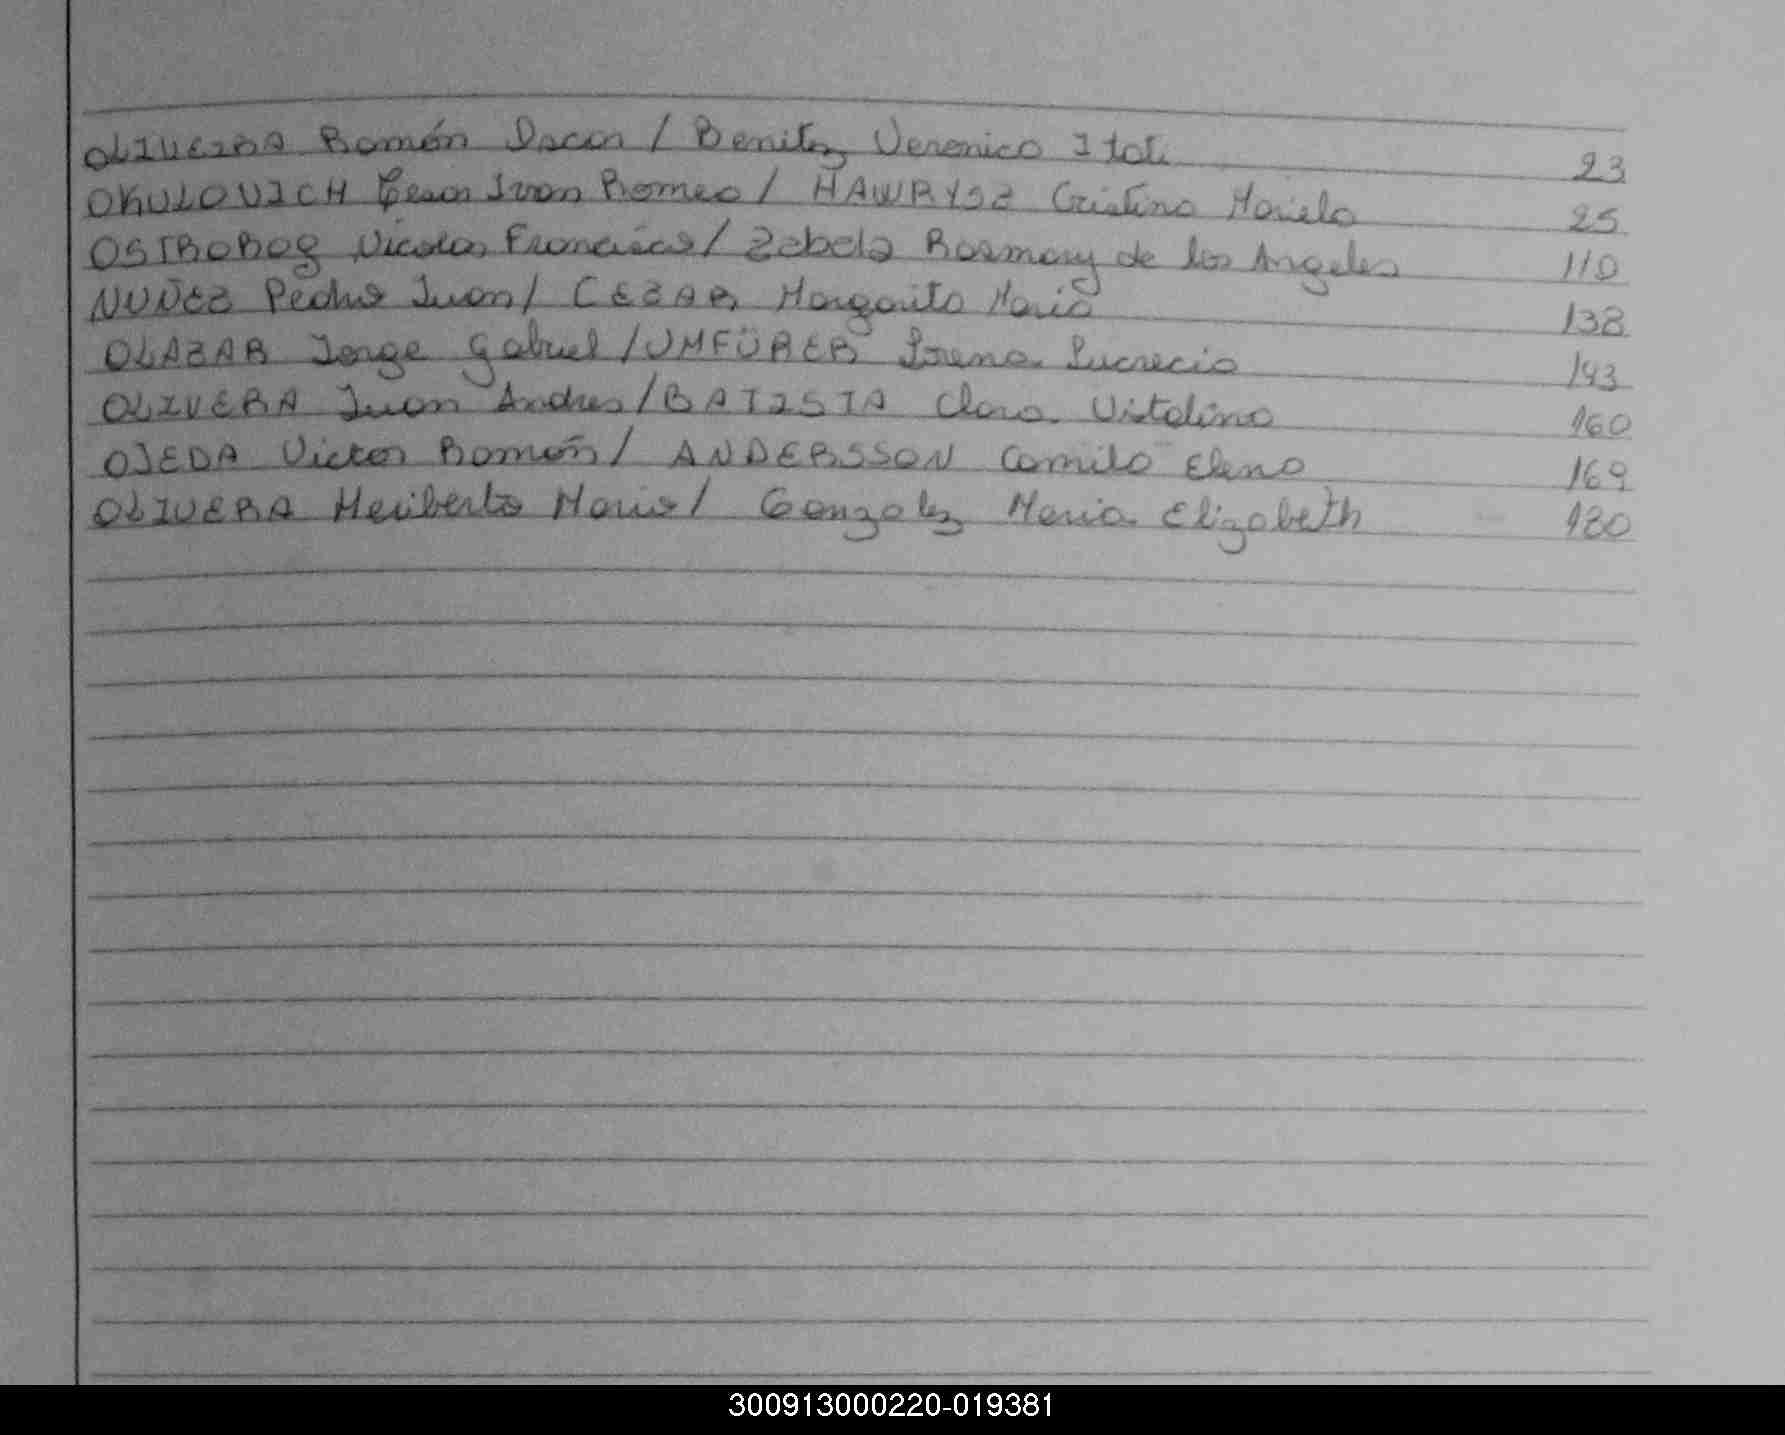 OLIVEIRA Ramón Oscar / Benitez Veronica Itati 23
OKULOVICH Cesar Ivan Romeo / HAWRYSZ Cristina Mariela 25
OSTROBOG Nicolas Francisco / Zebela Rosmary de los Angeles 110
NUÑEZ Pedro Juan / CEZAR Margarita Maria 138
OLAZAR Jorge Gabriel / UMFÜRER Lorena Lucrecia 143
OLIVERA Juan Andres / BATISTA Clara Vitalina 160
OJEDA Victor Ramón / ANDERSSON Camila Elena 169
OLIVERA Heriberto Mario / Gonzalez Maria Elizabeth 180
300913000220-019381